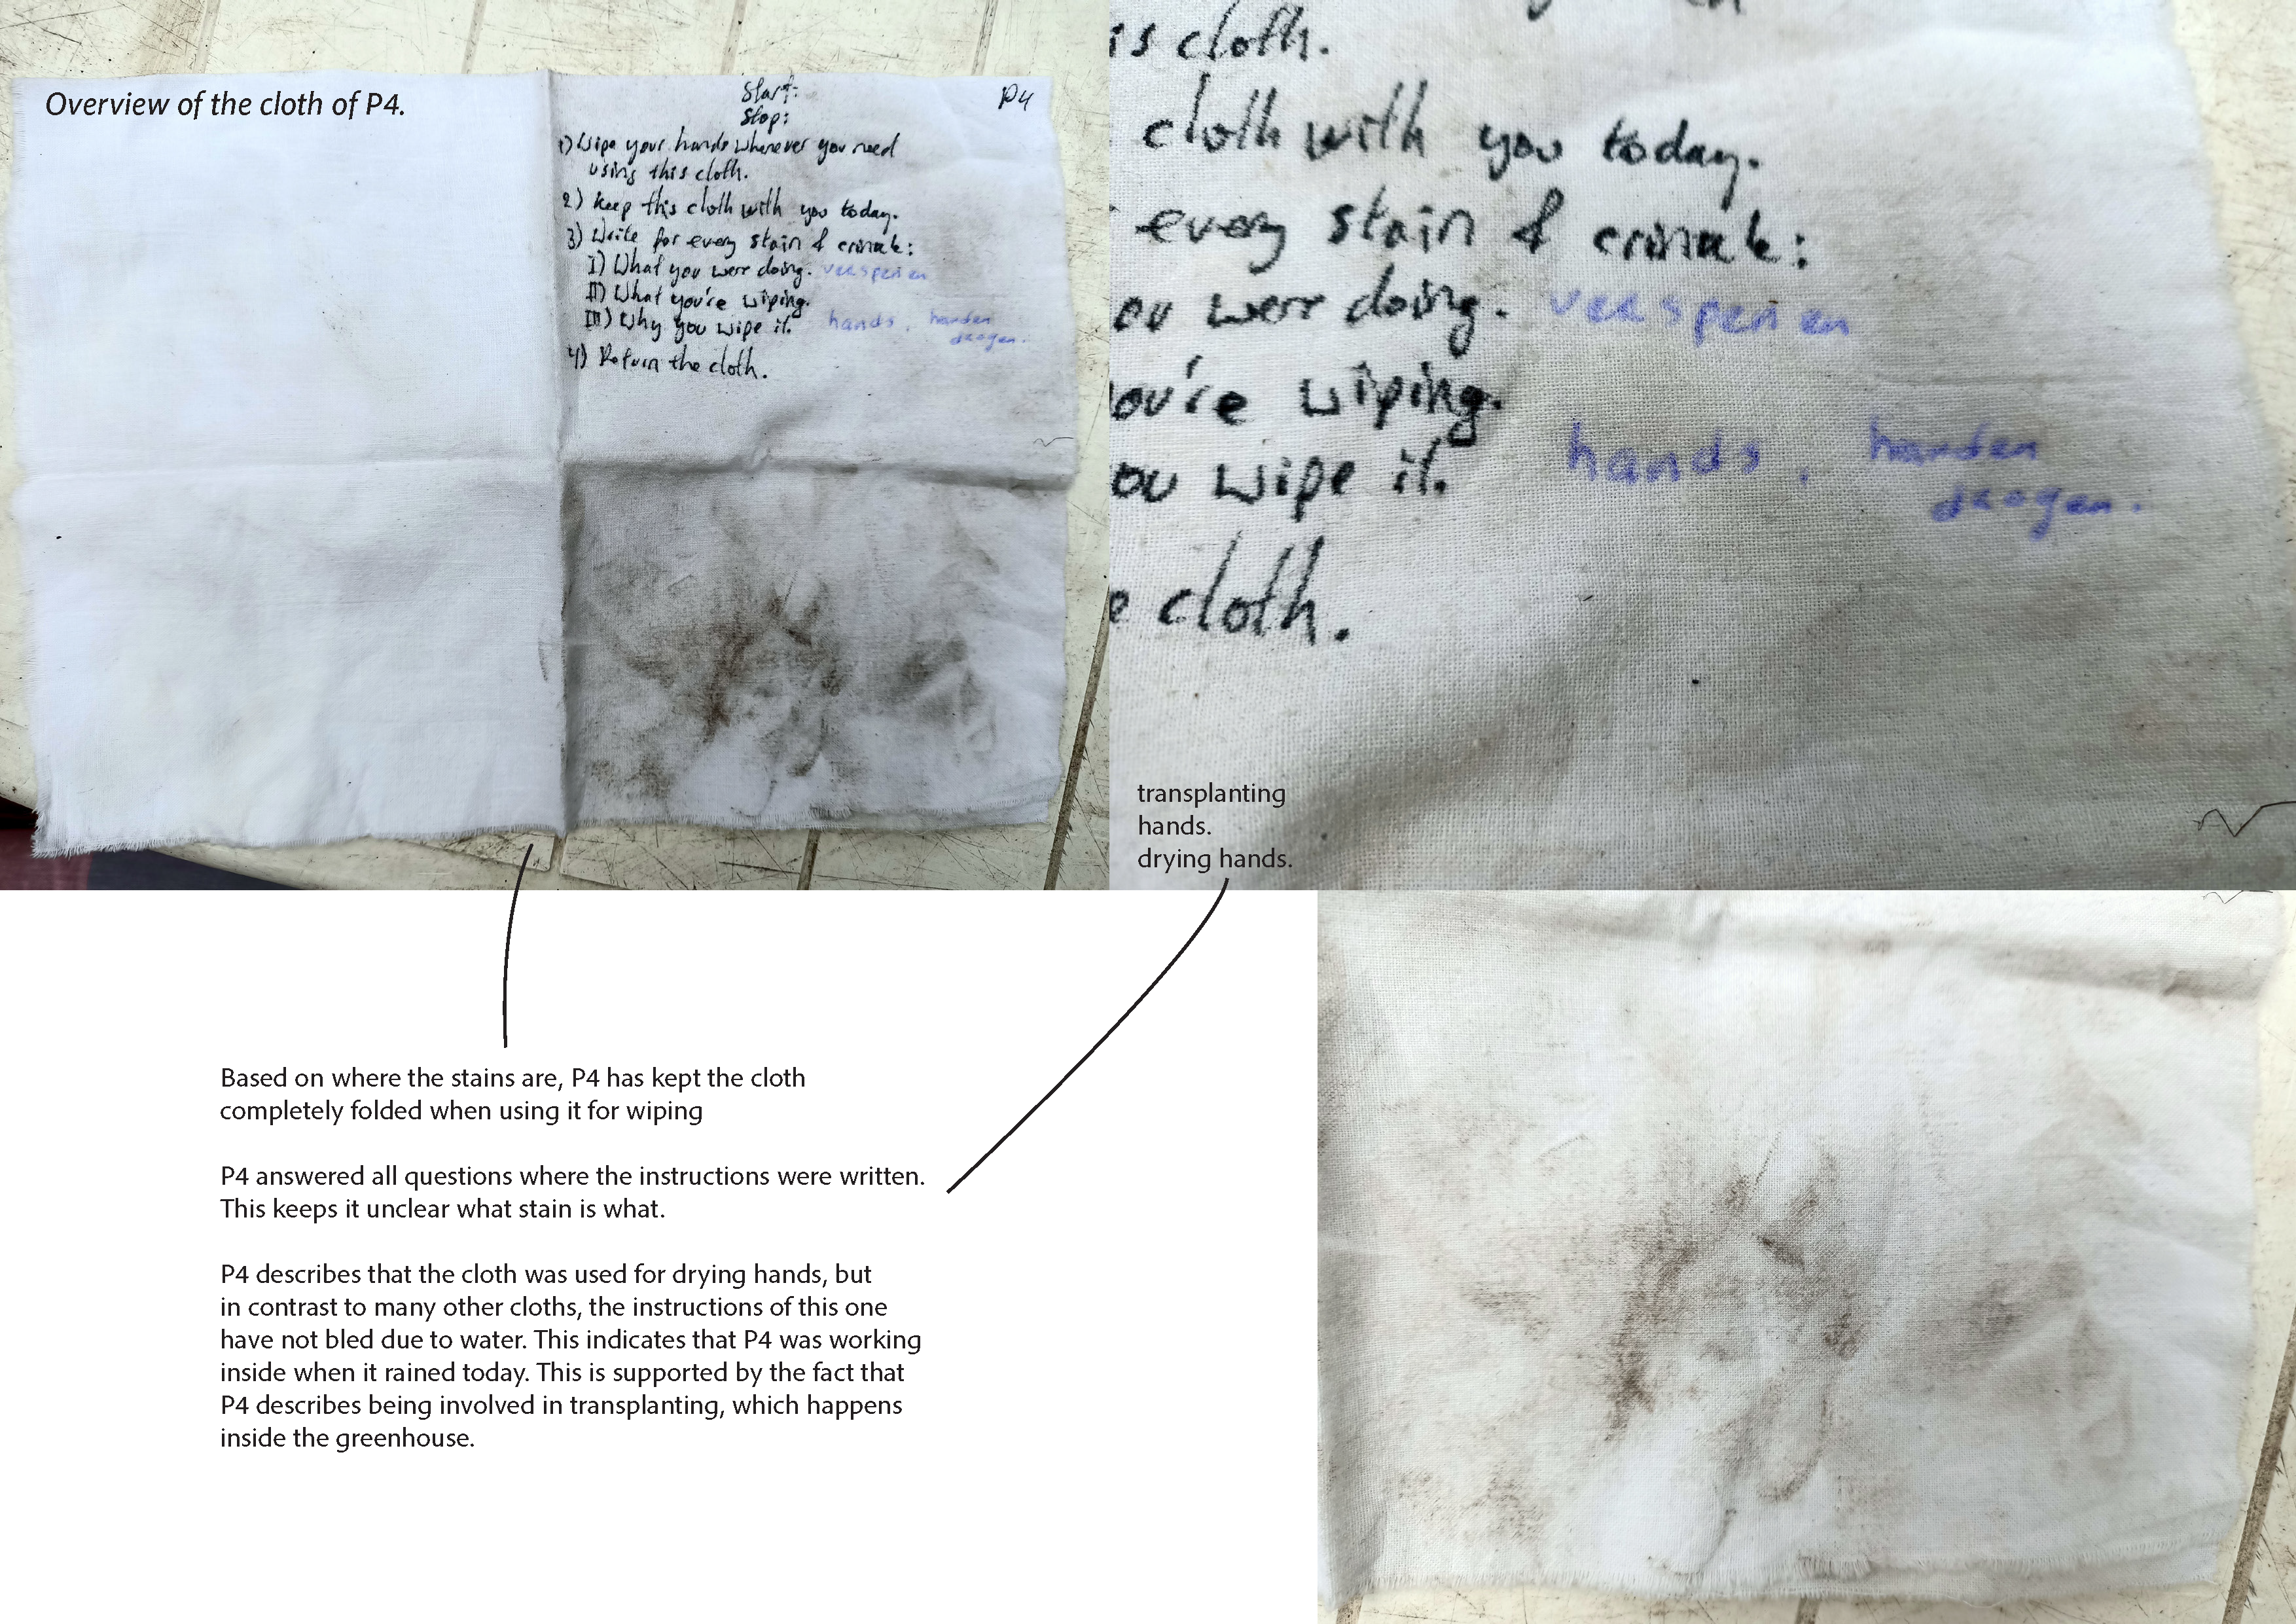 Overview of the cloth of P4.
Start:
Stop:
P4
1) Wipe your hands whenever you need
using this cloth.
2) Keep this cloth with you today.
3) Write for every stain & crinale:
I) What you were doing. verspenen
II) What you're wiping.
III) Why you wipe it. hands. handen
drogen.
4) Return the cloth.
is cloth.
cloth with you today.
every stain & crinale:
ou were doing. verspenen
ou're wiping.
ou wipe it. hands. handen
drogen.
e cloth.
transplanting
hands.
drying hands.
Based on where the stains are, P4 has kept the cloth
completely folded when using it for wiping
P4 answered all questions where the instructions were written.
This keeps it unclear what stain is what.
P4 describes that the cloth was used for drying hands, but
in contrast to many other cloths, the instructions of this one
have not bled due to water. This indicates that P4 was working
inside when it rained today. This is supported by the fact that
P4 describes being involved in transplanting, which happens
inside the greenhouse.